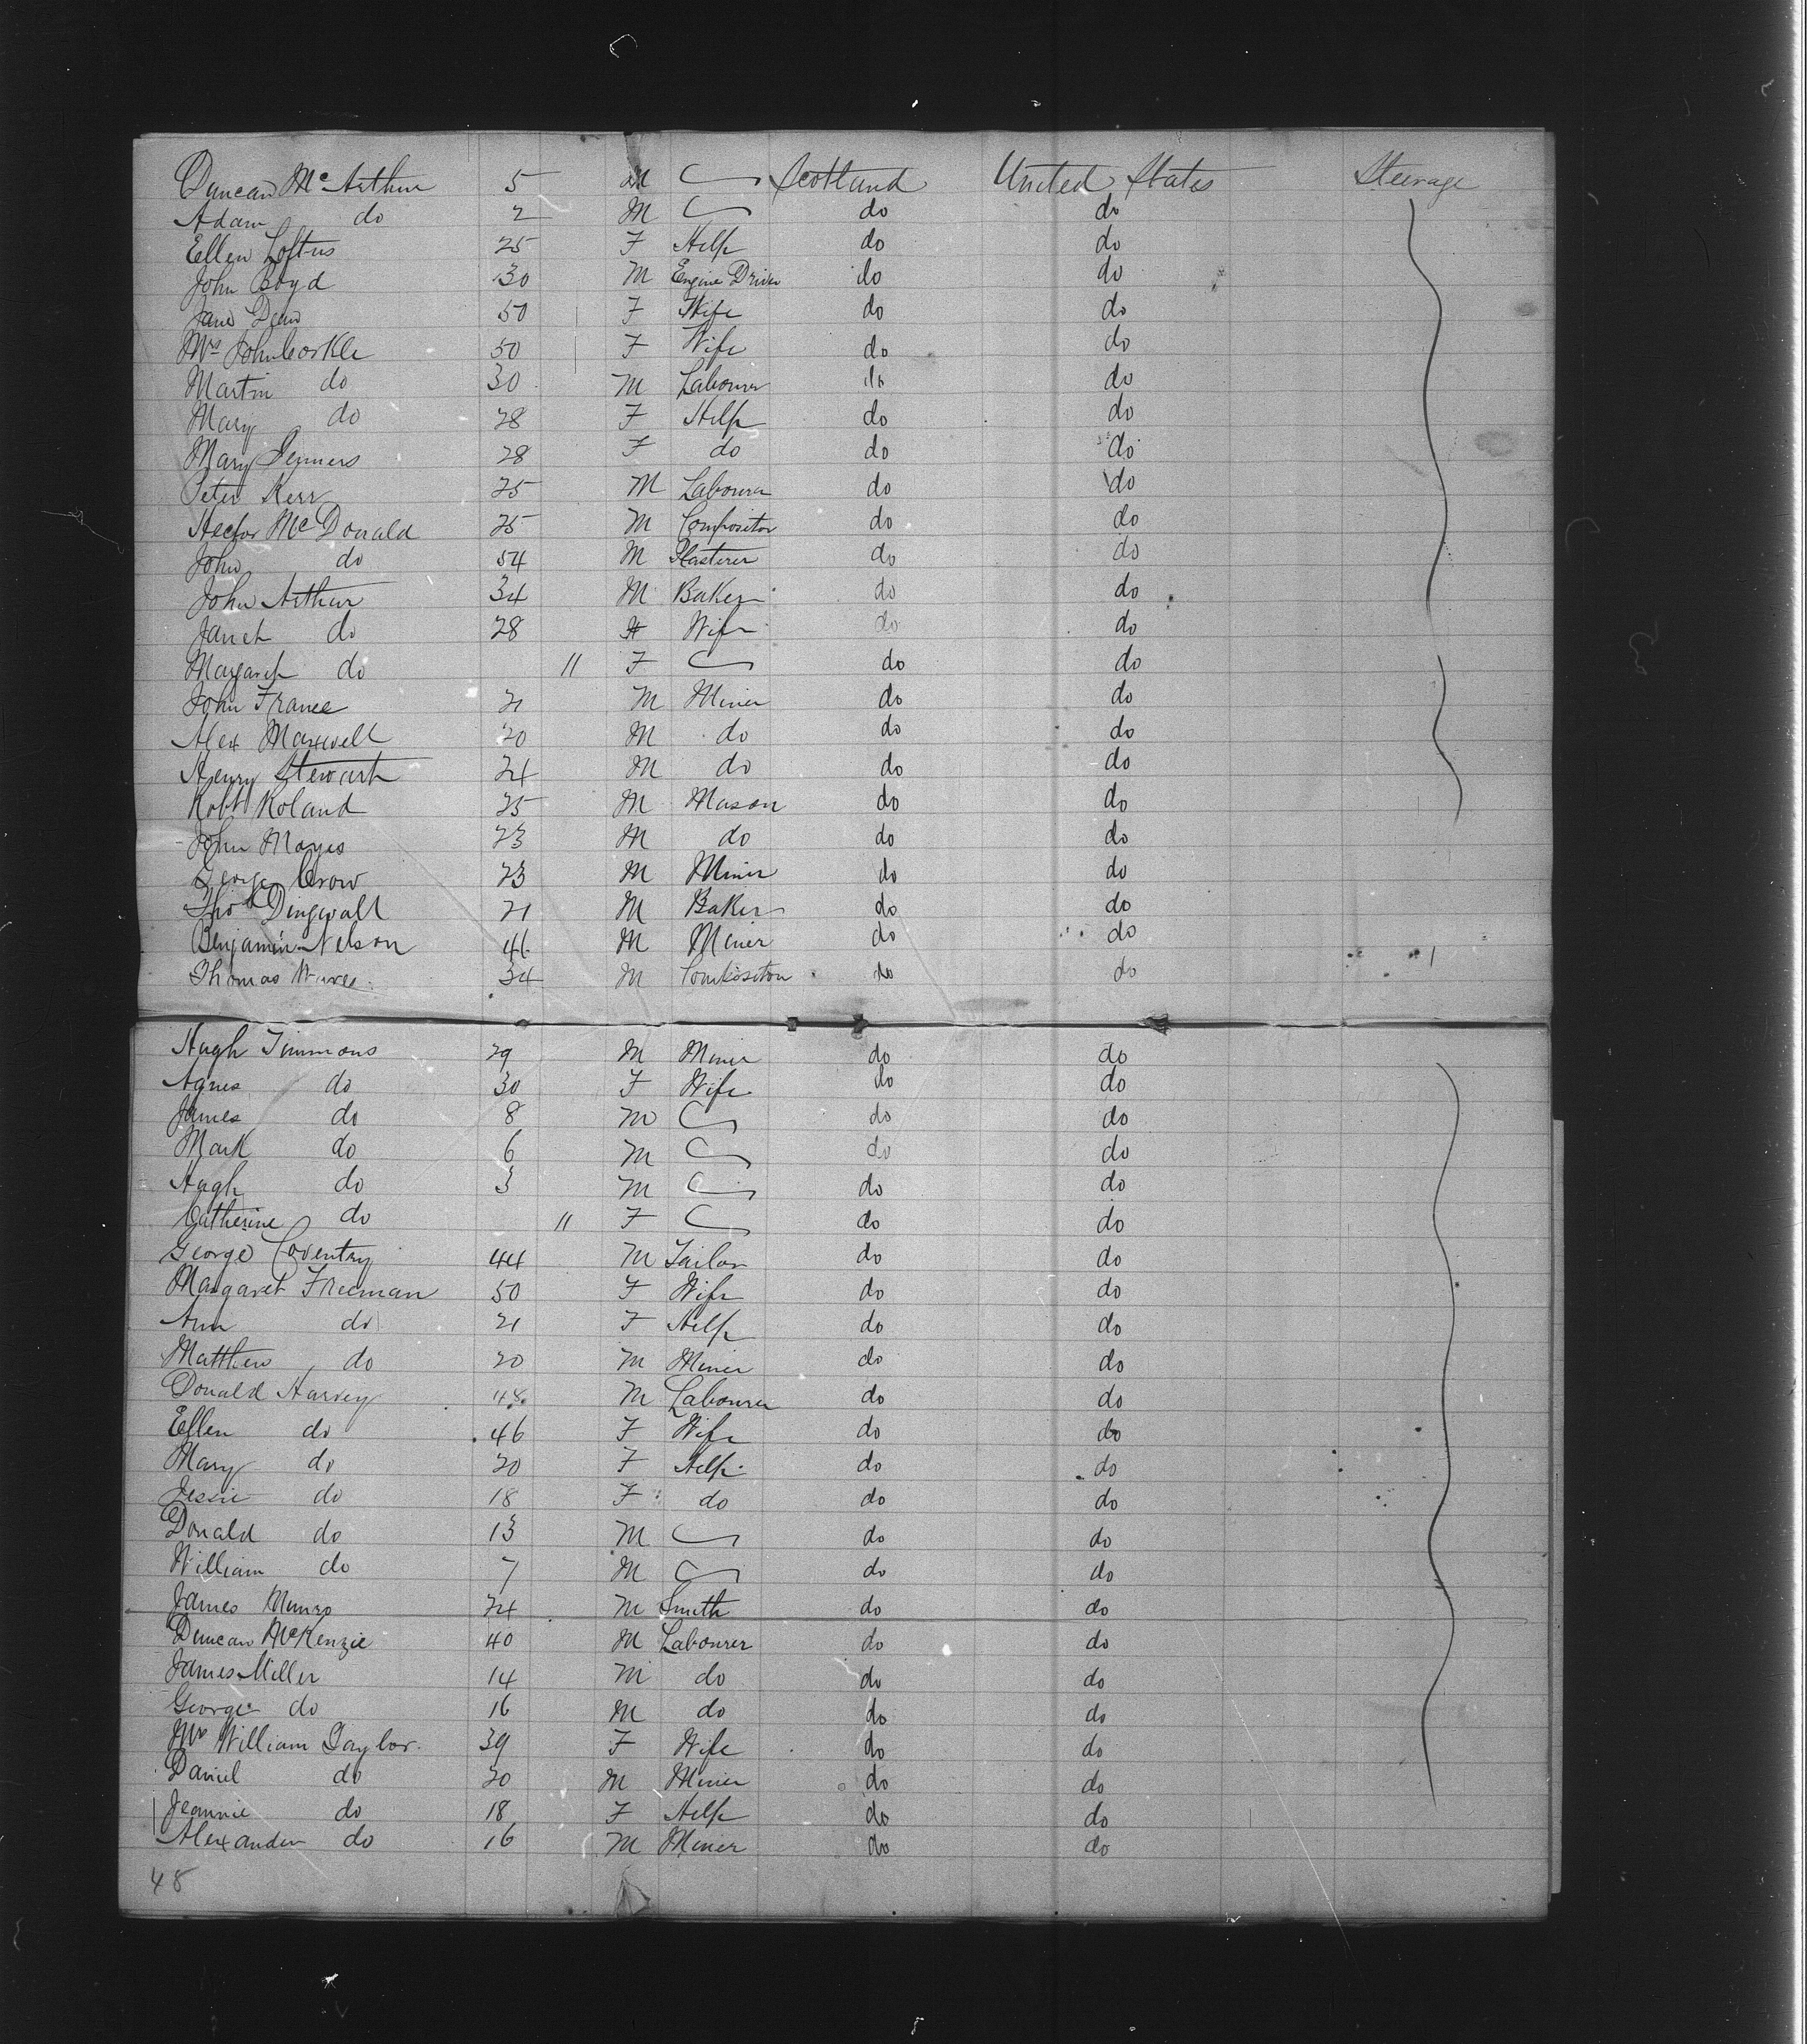 Duncan McArthur 5 M Scotland United States Steerage
Adam do 2 M do do
Ellen Loftus 25 F Help do do
John Boyd 30 M Engine Driver do do
Jane Dean 50 F Wife do do
Mrs John Corkle 50 F Wife do do
Martin do 30 M Labourer do do
Mary do 28 F Help do do
Mary 28 F do do do
Peter Kerr 25 M Labourer do do
Hector McDonald 25 M Compositor do do
John do 54 M Plasterer do do
John Arthur 34 M Baker do do
Janet do 28 Wife do do
Margaret do 11 F do do
John France 21 M Miner do do
Alex Maxwell 20 M do do do
Henry Stewart 24 M do do do
Robt Roland 25 M Mason do do
John Mayes 23 M do do do
George Crow 23 M Miner do do
Thos Dingwall 21 M Baker do do
Benjamin Nelson 46 M Miner do do
Thomas 34 M Compositor do do
Hugh Timmons 29 M Miner do do
Agnes do 30 F Wife do do
James do 8 M do do
Mark do 6 M do do
Hugh do 3 M do do
Catherine do 11 F do do
George Coventry 44 M Tailor do do
Margaret Freeman 50 F Wife do do
Ann do 21 F Help do do
Matthew do 20 M Miner do do
Donald Harvey 48 M Labourer do do
Ellen do 46 F Wife do do
Mary do 20 F Help do do
Jessie do 18 F do do do
Donald do 13 M do do
William do 7 M do do
James Munro 24 M Smith do do
Duncan McKenzie 40 M Labourer do do
James Miller 14 M do do do
George do 16 M do do do
Mrs William Taylor 39 F Wife do do
Daniel do 20 M Miner do do
Jeannie do 18 F Help do do
Alexander do 16 M Miner do do
48